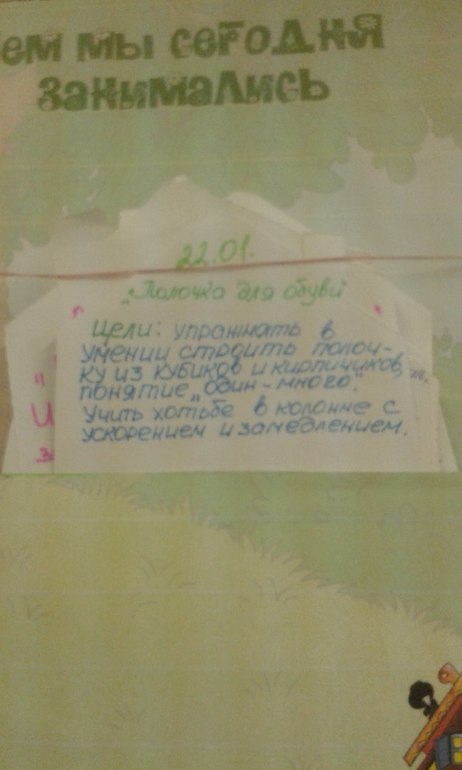 ем мы сегодня
занимались
22.01.
„Полочка для обуви"
Цели: упражнять в
умении строить полоч-
ку из кубиков и кирпичиков,
понятие „один-много".
Учить хотьбе в колонне с
ускорением и замедлением.